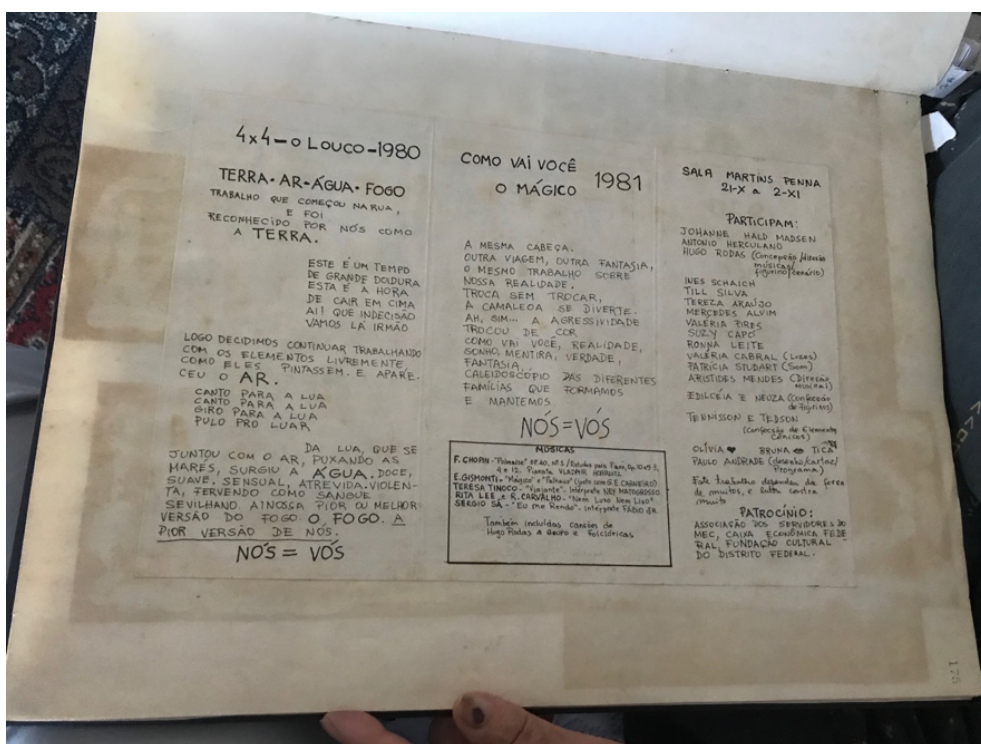 4x4-O LOUCO-1980
TERRA·AR·ÁGUA·FOGO
TRABALHO QUE COMEÇOU NA RUA,
E FOI
RECONHECIDO POR NÓS COMO
A TERRA.
ESTE É UM TEMPO
DE GRANDE DOIDURA
ESTA É A HORA
DE CAIR EM CIMA
AI! QUE INDECISÃO
VAMOS LÁ IRMÃO
LOGO DECIDIMOS CONTINUAR TRABALHANDO
COM OS ELEMENTOS LIVREMENTE,
COMO ELES PINTASSEM. E APARE.
CEU O AR.
CANTO PARA A LUA
CANTO PARA A LUA
GIRO PARA A LUA
PULO PRO LUAR
DA LUA, QUE SE
JUNTOU COM O AR, PUXANDO AS
MARES, SURGIU A ÁGUA. DOCE,
SUAVE. SENSUAL, ATREVIDA. VIOLEN-
TA, FERVENDO COMO SANGUE
SEVILHANO. A NOSSA PIOR OU MELHOR
VERSÃO DO FOGO O FOGO. A
PIOR VERSÃO DE NÓS.
NÓS = VÓS
COMO VAI VOCÊ
O MÁGICO 1981
A MESMA CABEÇA.
OUTRA VIAGEM, OUTRA FANTASIA,
O MESMO TRABALHO SOBRE
NOSSA REALIDADE.
TROCA SEM TROCAR,
A CAMALEOA SE DIVERTE.
AH, SIM... A AGRESSIVIDADE
TROCOU DE COR
COMO VAI VOCÊ, REALIDADE,
SONHO, MENTIRA, VERDADE,
FANTASIA.
CALEIDOSCÓPIO DAS DIFERENTES
FAMÍLIAS QUE FORMAMOS
E MANTEMOS
NÓS=VÓS
MÚSICAS
F. CHOPIN - "Polonaise" op. 40, nº 1 / Estudos para Piano, Op. 10 nº 3,
4 e 12. Pianista VLADIMIR HOROWITZ
E. GISMONTI - "Mágico" e "Palhaço" (junto com G. E. CARNEIRO)
TERESA TINOCO - "Viajante". Intérprete NEY MATOGROSSO
RITA LEE e R. CARVALHO - "Nem Luxo Nem Lixo"
SERGIO SÁ - "Eu me Rendo". Intérprete FÁBIO JR.
Também incluídas canções de
Hugo Rodas e Grupo e Folclóricas
SALA MARTINS PENNA
21-X a 2-XI
PARTICIPAM:
JOHANNE HALD MADSEN
ANTONIO HERCULANO
HUGO RODAS (Concepção/direção
músicas/
figurino/cenário)
INES SCHAICH
TILL SILVA
TEREZA ARAÚJO
MERCEDES ALVIM
VALÉRIA PIRES
SUZY CAPÓ
RONNA LEITE
VALÉRIA CABRAL (Luzes)
PATRÍCIA STUDART (Som)
ARISTIDES MENDES (Direção
musical)
EDILCÉIA E NEUZA (Confecção
de figurinos)
TENNISSON E TEDSON
(Confecção de Elementos
Cênicos)
OLÍVIA BRUNA TICA
PAULO ANDRADE (desenho/cartaz/
Programa)
Este trabalho dependeu da força
de muitos, e lutou contra
muito
PATROCÍNIO:
ASSOCIAÇÃO DOS SERVIDORES DO
MEC, CAIXA ECONÔMICA FEDE
RAL, FUNDAÇÃO CULTURAL
DO DISTRITO FEDERAL.